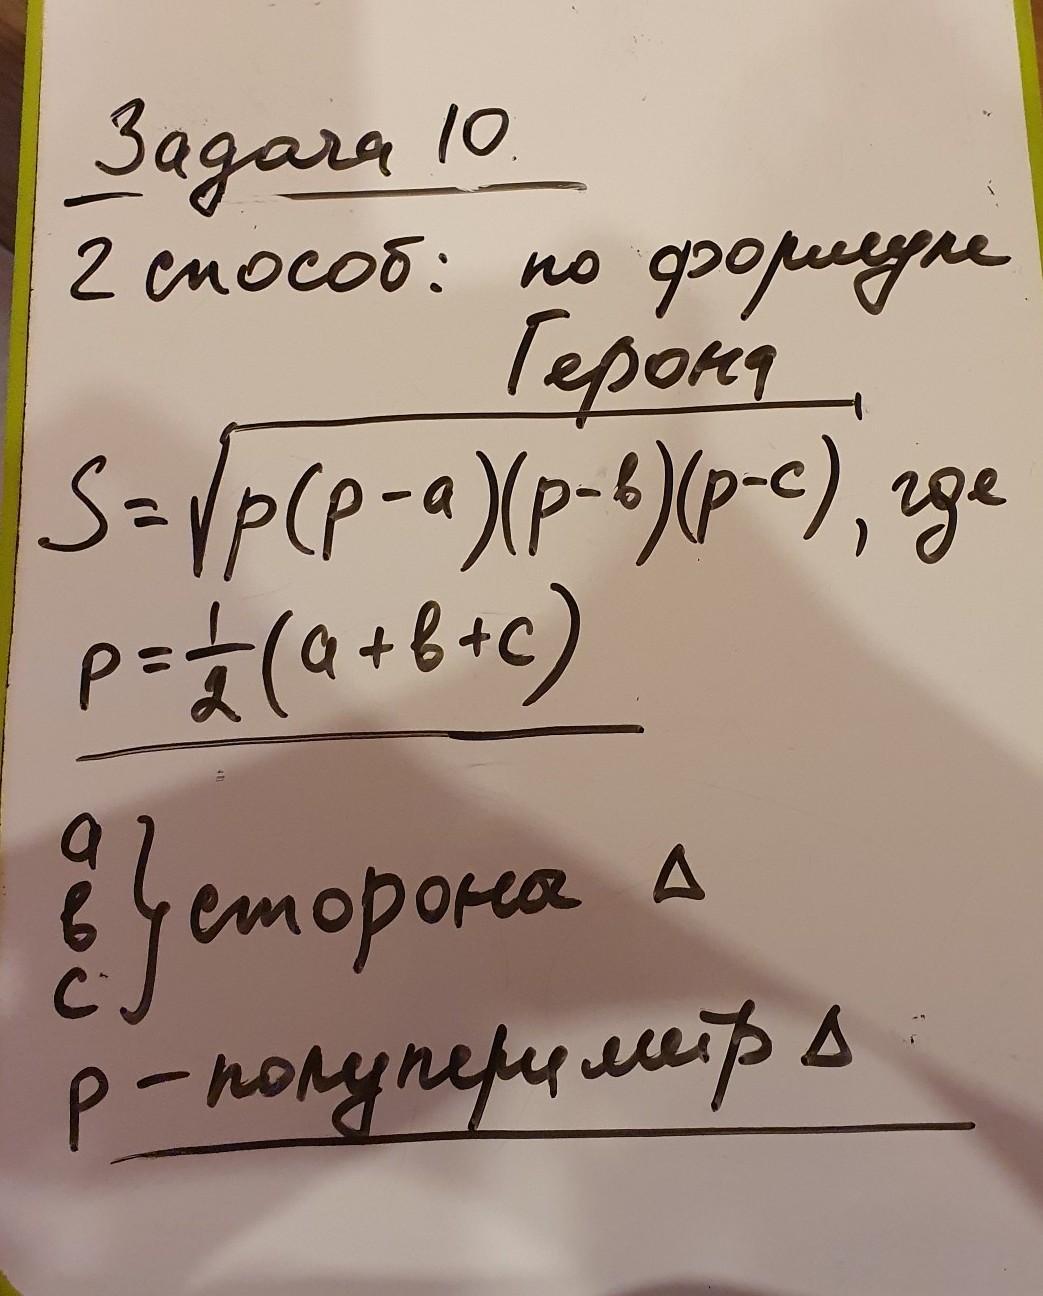 Задача 10.
2 способ: по формуле
Герона
S = √p(p-a)(p-в)(p-c), где
p = 1/2 (a+в+c)
a
в
c
} стороны Δ
p – полупериметр Δ